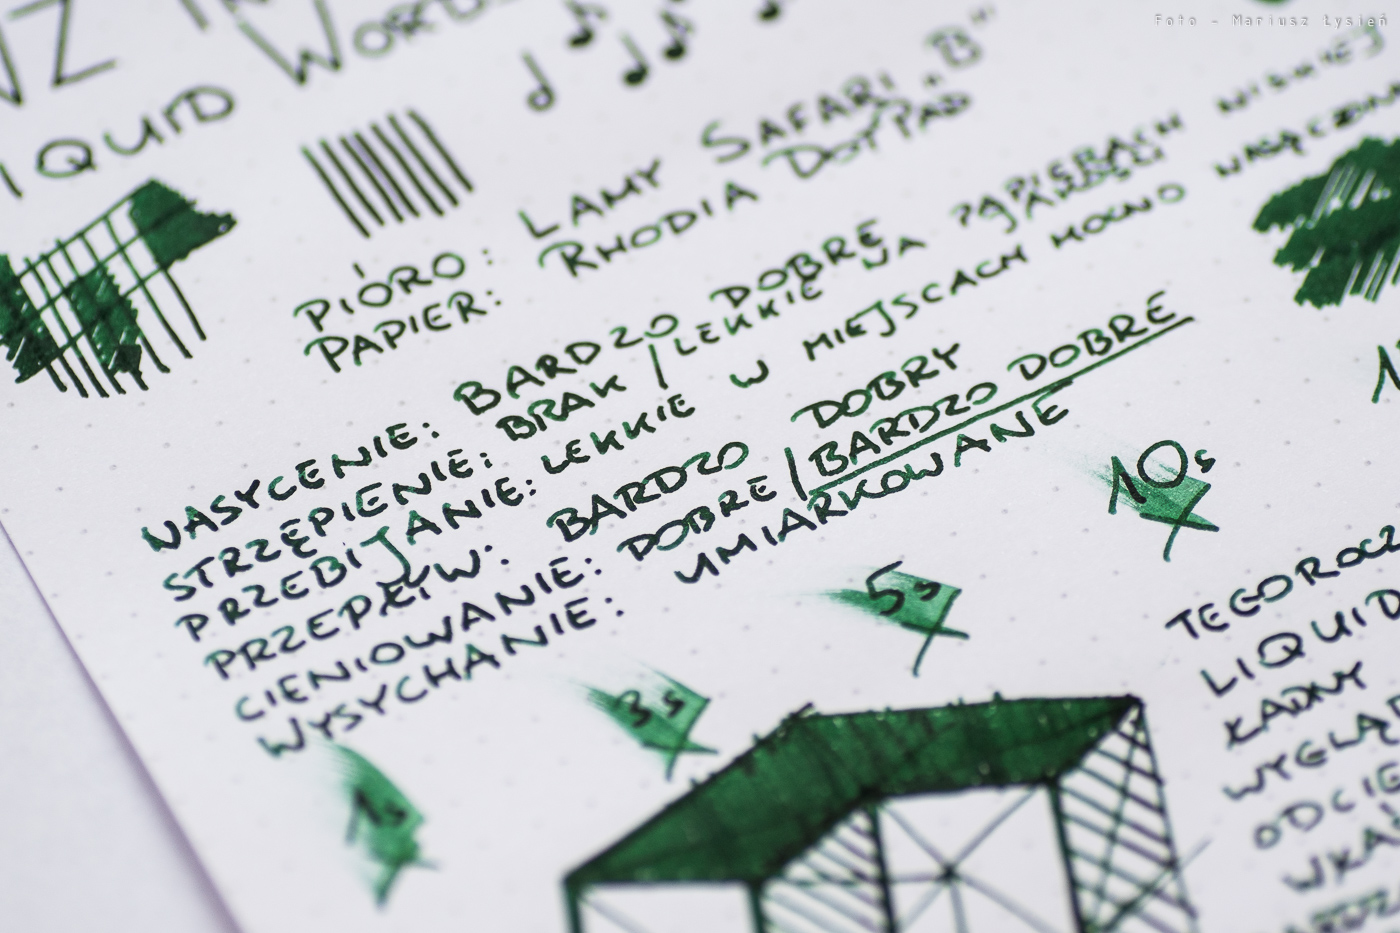 Foto - Mariusz Łysień
LIQUID WORDS
PIÓRO: LAMY SAFARI „B”
PAPIER: RHODIA DOTPAD
NASYCENIE: BARDZO DOBRE
STRZĘPIENIE: BRAK / LEKKIE NA PAPIERACH NIŻSZEJ
JAKOŚCI
PRZEBIJANIE: LEKKIE W MIEJSCACH MOCNO
PRZEPŁYW: BARDZO DOBRY
CIENIOWANIE: DOBRE / BARDZO DOBRE
WYSYCHANIE: UMIARKOWANE
1s
3s
5s
10s
TEGOROCZ
LIQUID
ŁADNY
WYGLĄ
ODCIE